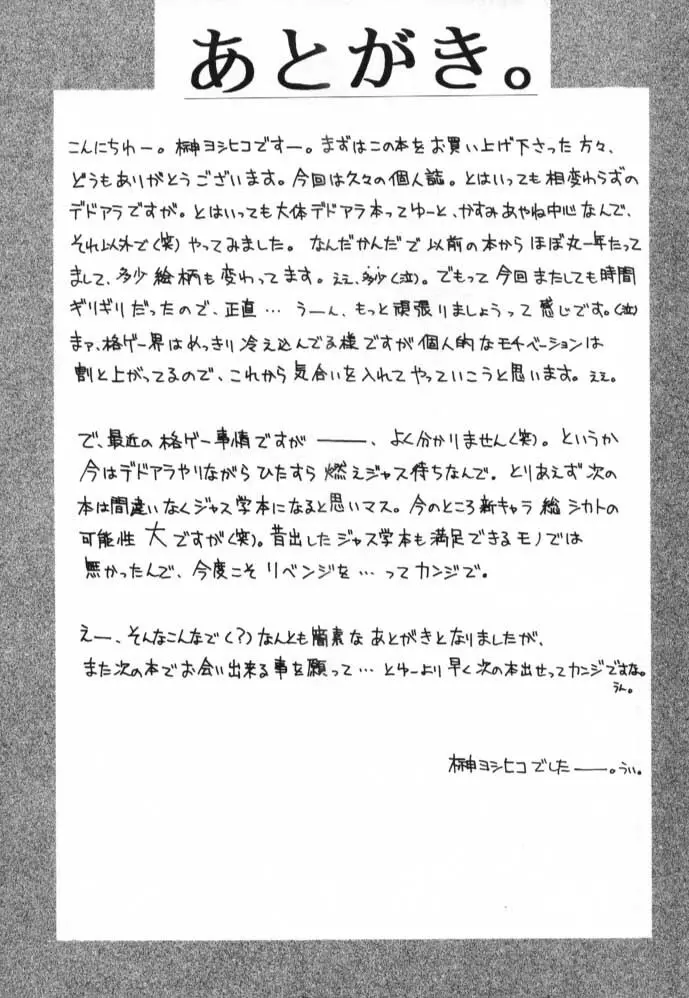 あとがき。
こんにちわー。榊ヨシヒコですー。まずはこの本をお買い上げ下さった方々、
どうもありがとうございます。今回は久々の個人誌。とはいっても相変わらずの
デドアラですが。とはいっても大体デドアラ本ってゆーと、かすみあやね中心なんで、
それ以外で(笑)やってみました。なんだかんだで以前の本からほぼ丸一年たって
まして、多少絵柄も変わってます。ええ、多少(泣)。でもって今回またしても時間
ギリギリだったので、正直…うーん、もっと頑張りましょうって感じです。(泣)
まァ、格ゲー界はめっきり冷え込んでる様ですが個人的なモチベーションは
割と上がってるので、これから気合いを入れてやっていこうと思います。ええ。
で、最近の格ゲー事情ですが———、よく分かりません(笑)。というか
今はデドアラやりながらひたすら燃えジャス待ちなんで。とりあえず次の
本は間違いなくジャス学本になると思いマス。今のところ新キャラ総シカトの
可能性大ですが(笑)。昔出したジャス学本も満足できるモノでは
無かったんで、今度こそリベンジを…ってカンジで。
えー、そんなこんなで(?)なんとも簡素なあとがきとなりましたが、
また次の本でお会い出来る事を願って…とゆーより早く次の本出せってカンジですな。
うん。
榊ヨシヒコでした———。うい。